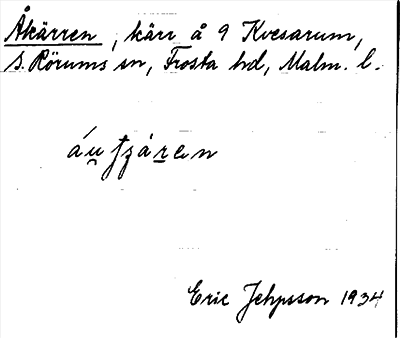 Åkärren, kärr å 9 Kvesarum,
S. Rörums sn, Frosta hd, Malm. l.
Eric Jepsson 1934